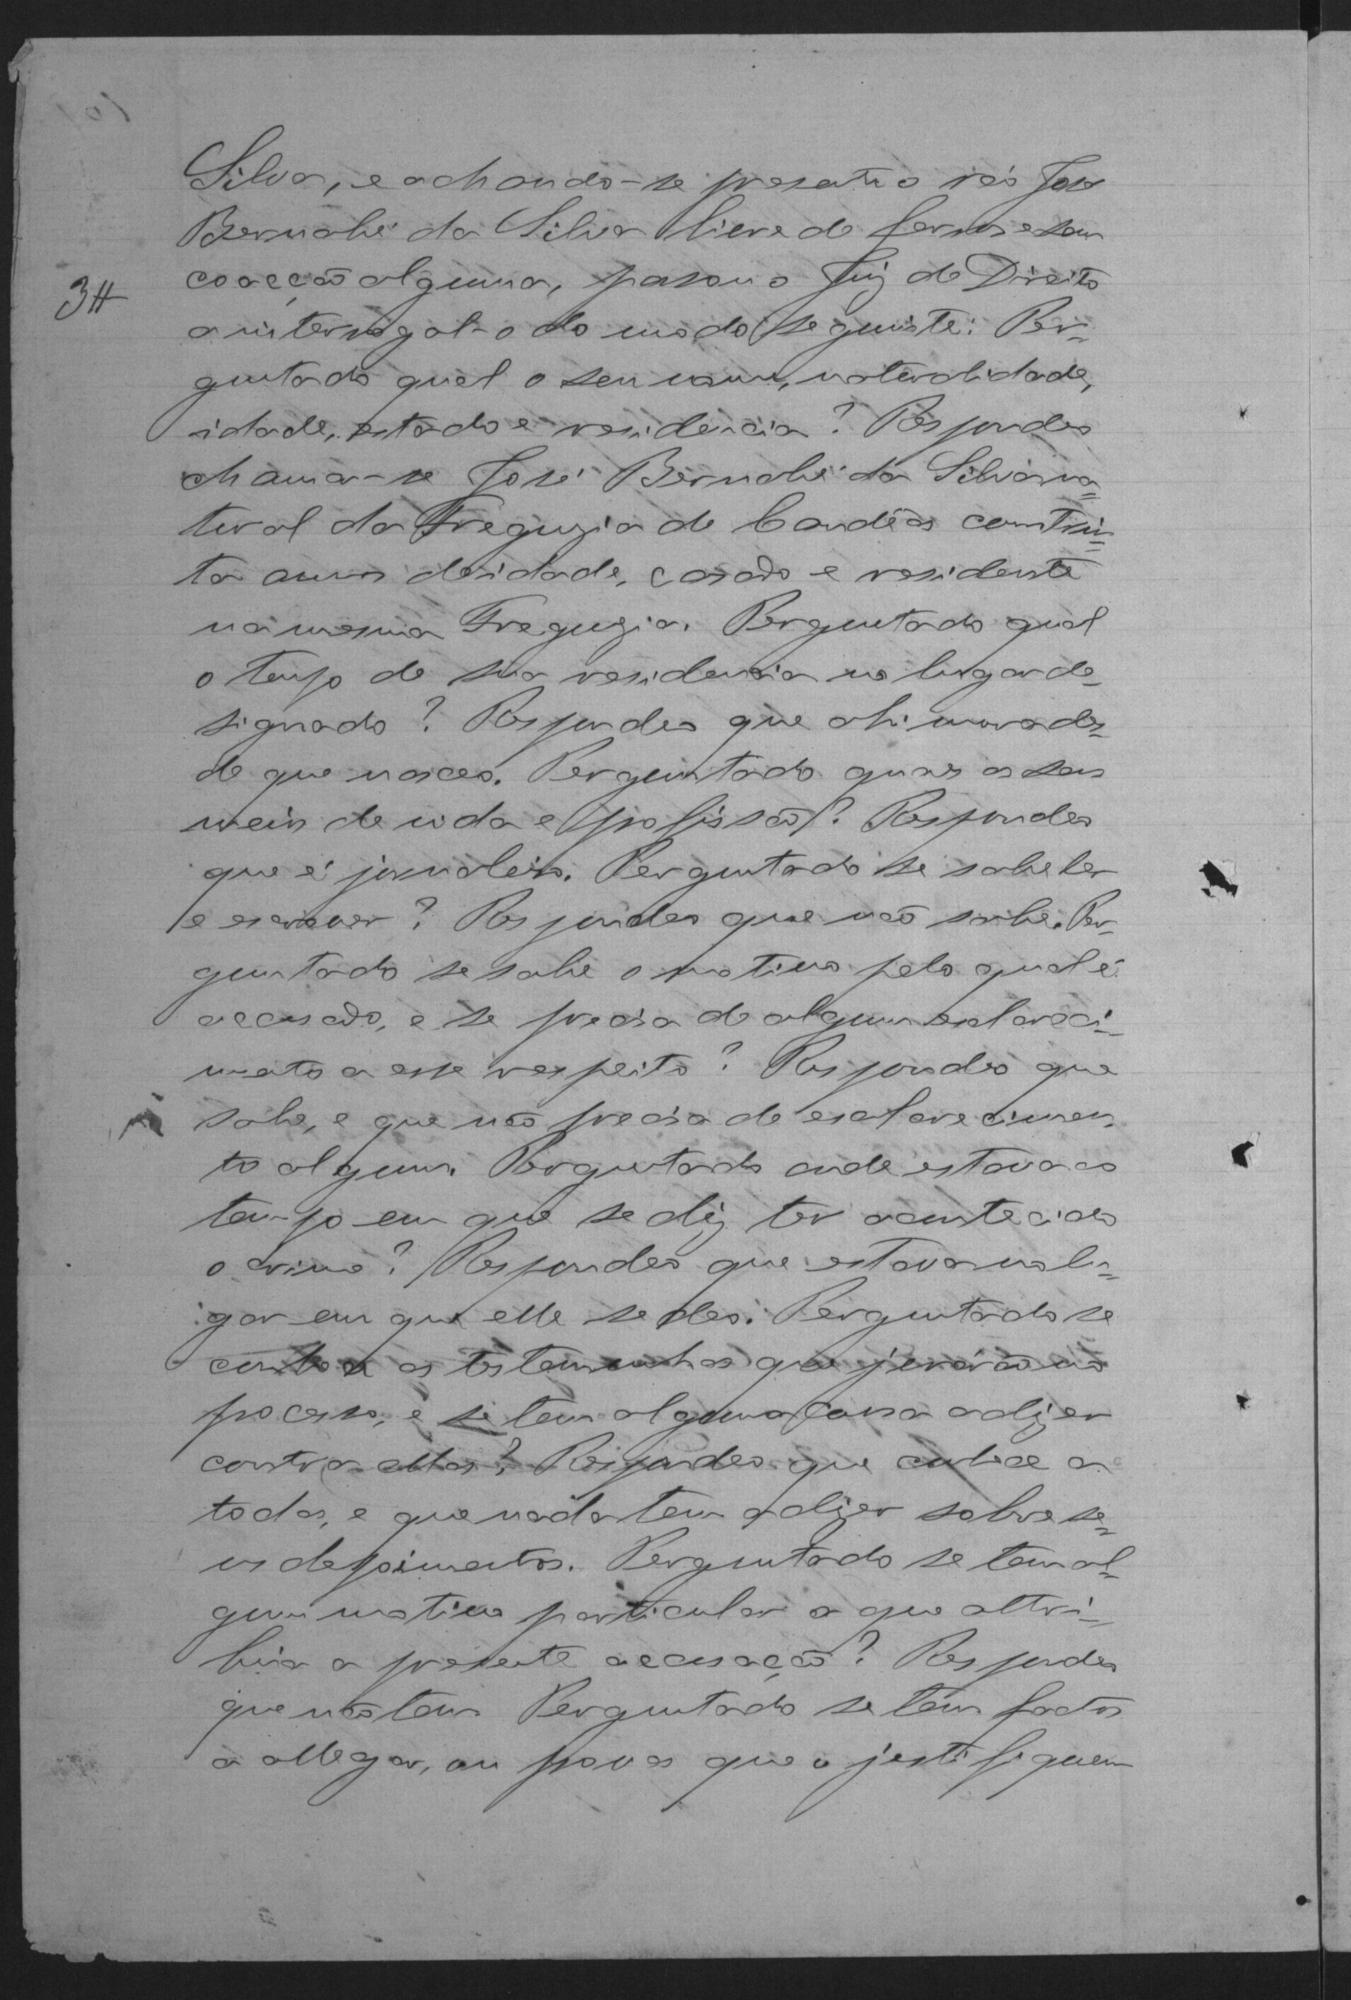 Silva, e achando-se presente o réo José
Bernabé da Silva livre de ferros e sem
3#
coacção alguma, passou o Juiz de Direito
a interrogal-o do modo seguinte: Per-
guntado qual o seu nome, naturalidade,
idade, estado e residencia? Respondeo
chamar-se José Bernabé da Silva na=
tural da Freguzia de Candêas com trin=
ta annos de idade, casado e residente
na mesma Freguzia. Perguntado qual
o tempo de sua residencia no lugar de-
signado? Respondeo que ahi mora des-
de que nasceo. Perguntado quaes os seus
meios de vida e profissão? Respondeo
que é jornaleiro. Perguntado se sabe ler
e escrever? Respondeo que não sabe. Per-
guntado se sabe o motivo pelo qual é
accusado, e se precisa de algum esclareci-
mento a esse respeito? Respondeo que
sabe, e que não precisa de esclarecimen
to algum. Perguntado onde estava ao
tempo em que se diz ter acontecido
o crime? Respondeo que estava no lu=
gar em que elle se deo. Perguntado se
conhece as testemunhas que jurárão no
processo, e se tem alguma cousa a dizer
contra ellas? Respondeo que conhece a
todas, e que nada tem a dizer sobre se=
us depoimentos. Perguntado se tem al-
gum motivo particular a que attri-
bua a presente accusação? Respondeo
que não tem Perguntado se tem factos
a allegar, ou provas que o justifiquem